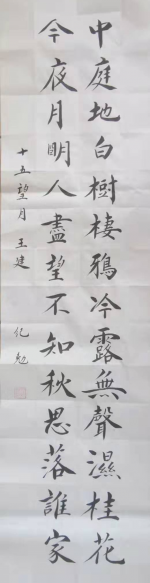 中庭地白樹棲鴉冷露無聲濕桂花
今夜月明人盡望不知秋思落誰家
十五望月 王建